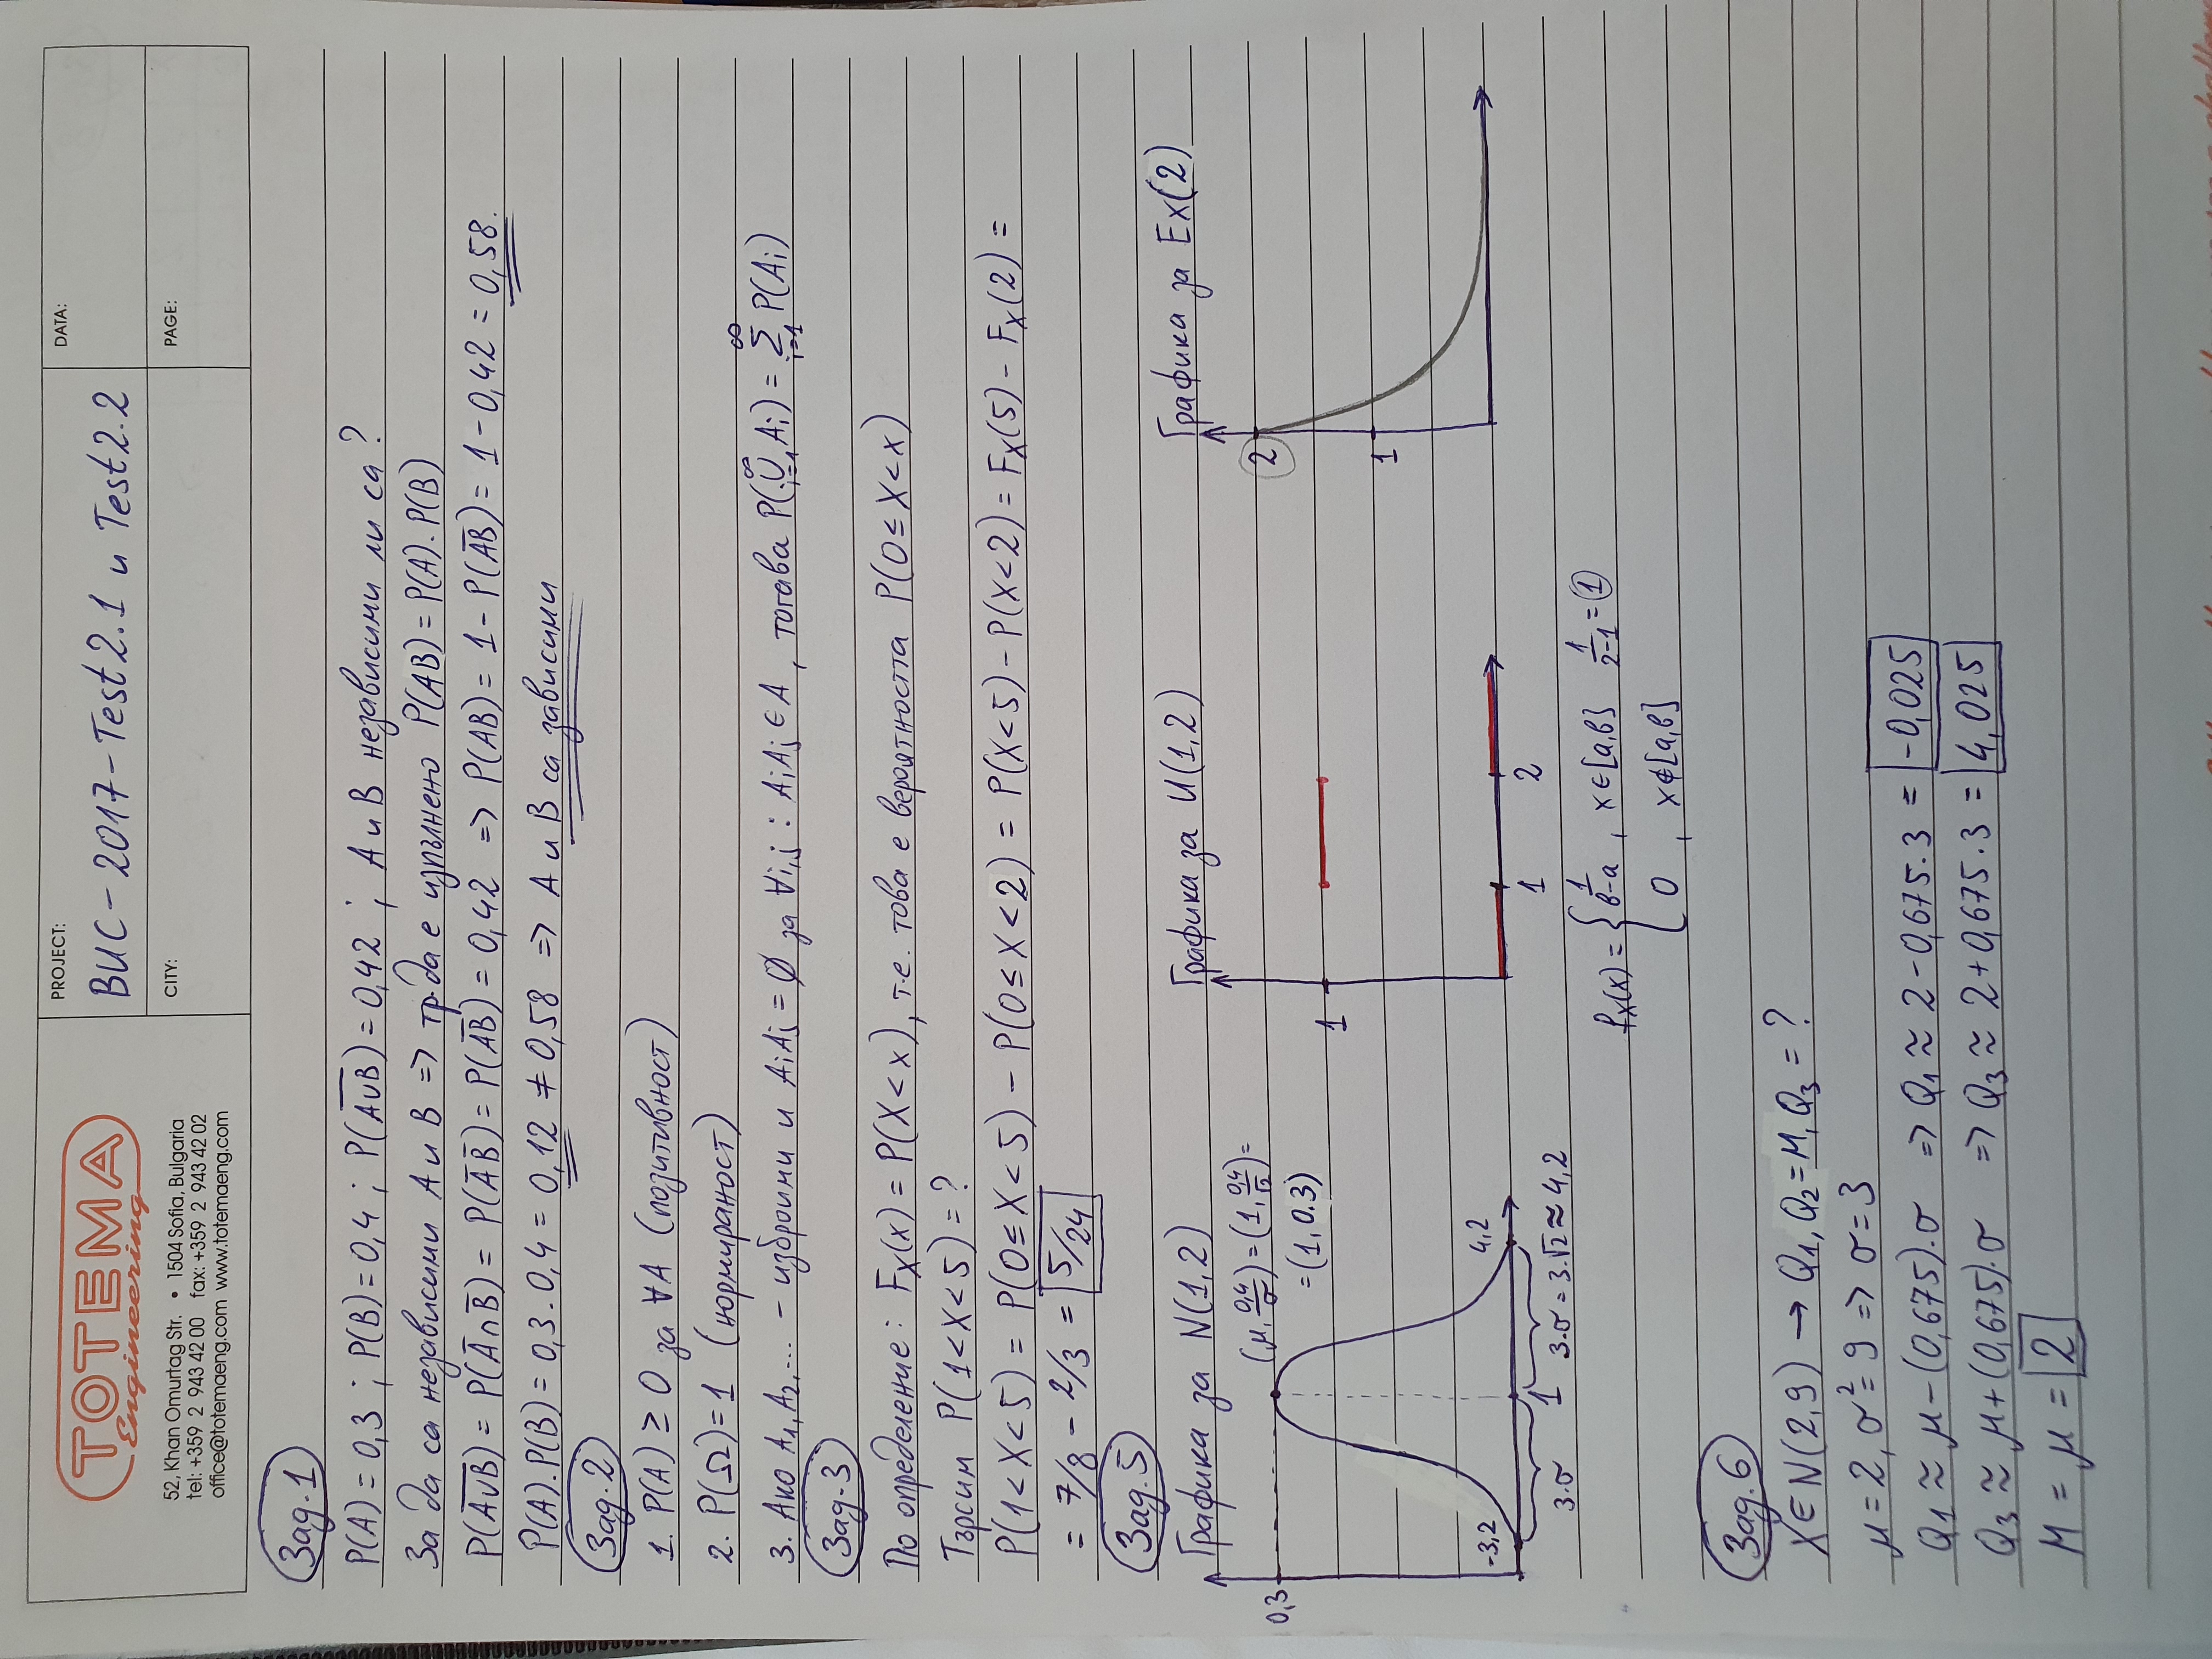 TOTEMA
Engineering
52, Khan Omurtag Str. • 1504 Sofia, Bulgaria
tel: +359 2 943 42 00 fax: +359 2 943 42 02
office@totemaeng.com www.totemaeng.com
PROJECT:
ВИС - 2017 - Test2.1 и Test2.2
DATA:
CITY:
PAGE:
Зад.1
P(A) = 0,3 ; P(B) = 0,4 ; P(A̅∪̅B̅) = 0,42 ; A и B независими ли са ?
За да са независими A и B => тр. да е изпълнено P(AB) = P(A). P(B)
P(A̅∪̅B̅) = P(A̅∩B̅) = P(A̅ B̅) = P(A̅B̅) = 0,42 => P(AB) = 1 - P(A̅B̅) = 1 - 0,42 = 0,58.
P(A).P(B) = 0,3.0,4 = 0,12 ≠ 0,58 => A и B са зависими
Зад.2
1. P(A) ≥ 0 за ∀A (позитивност)
2. P(Ω) = 1 (нормираност)
3. Ако A₁, A₂, ... - изброими и AᵢAⱼ = ∅ за ∀i,j : AᵢAⱼ ∈ A , тогава P(∪ᵢ₌₁^∞ Aᵢ) = Σᵢ₌₁^∞ P(Aᵢ)
Зад.3
По определение: Fₓ(x) = P(X < x), т.е. това е вероятността P(0 ≤ X < x)
Търсим P(1 < X < 5) = ?
P(1 < X < 5) = P(0 ≤ X < 5) - P(0 ≤ X < 2) = P(X < 5) - P(X < 2) = Fₓ(5) - Fₓ(2) =
= 7/8 - 2/3 = 5/24
Зад.5
Графика за N(1,2)
0,3
(μ, 0,4/σ) = (1, 0,4/√2) =
= (1, 0.3)
-3,2
4,2
3.σ
1
3.σ = 3.√2 ≈ 4,2
Графика за U(1,2)
1
1
2
fₓ(x) = { 1/(в-a) , x ∈ [a,в] 1/(2-1) = 1
0 , x ∉ [a,в]
Графика за Ex(2)
2
1
Зад.6
X ∈ N(2,9) → Q₁, Q₂ = M, Q₃ = ?
μ = 2, σ² = 9 => σ = 3
Q₁ ≈ μ - (0,675).σ => Q₁ ≈ 2 - 0,675.3 = -0,025
Q₃ ≈ μ + (0,675).σ => Q₃ ≈ 2 + 0,675.3 = 4,025
M = μ = 2